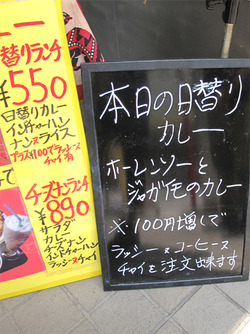 替りランチ
¥550
日替りカレー
インドチャーハン
ナン又ライス
プラス¥100でラッシー又
チャイ有
チーズナンランチ
¥890
サラダ
カレー
チーズナン
インドチャーハン
ラッシー又チャイ
本日の日替り
カレー
ホーレンソーと
ジャガイモのカレー
※100円増しで
ラッシー又コーヒー又
チャイを注文出来ます